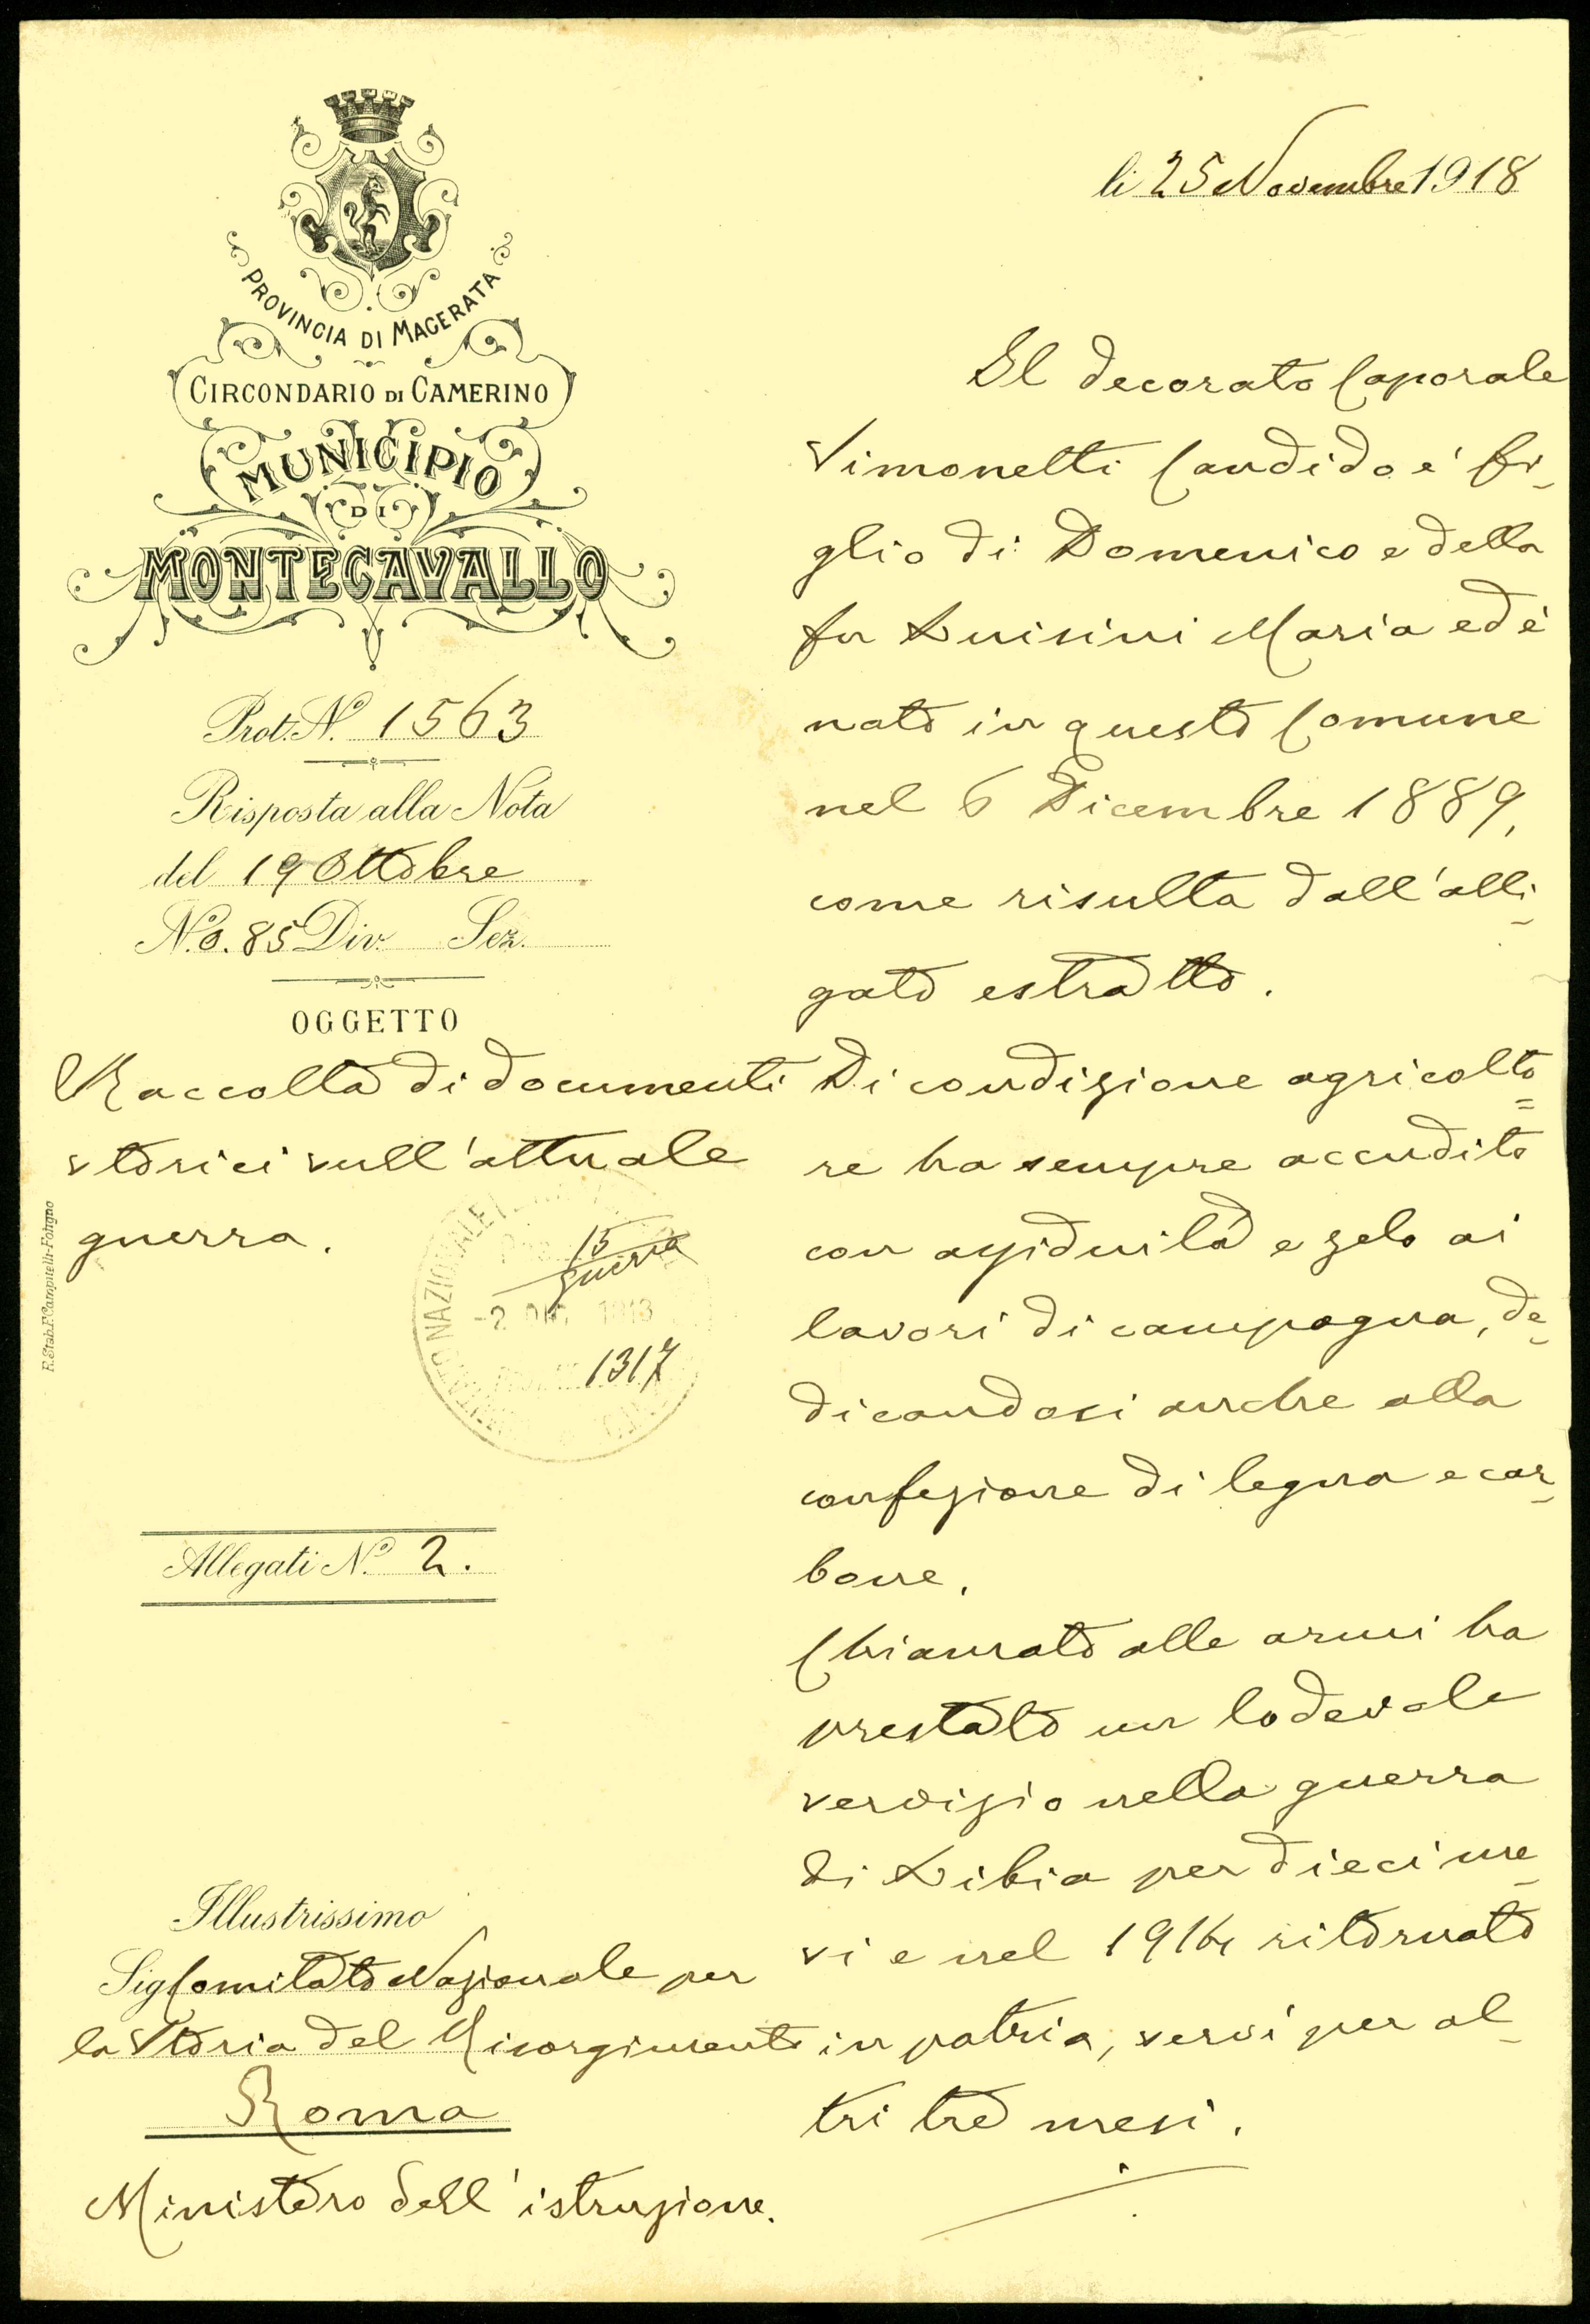 PROVINCIA DI MACERATA
CIRCONDARIO DI CAMERINO
MUNICIPIO
DI
MONTECAVALLO
Prot. N.º 1563
Risposta alla Nota
del 19 Ottobre
N.º 8.85 Div. Sez.
OGGETTO
Raccolta di documenti
storici sull'attuale
guerra.
R. Stab. F. Campitelli-Foligno
NAZIONALE
15
guerra
2 DIC. 1918
1317
Allegati N.º 2.
Illustrissimo
Sig Comitato Nazionale per
la Storia del Risorgimento
Roma
Ministero dell'istruzione.
li 25 Novembre 1918
Il decorato Caporale
Simonetti Candido è fi-
glio di Domenico e della
fu Luisini Maria ed è
nato in questo Comune
nel 6 Dicembre 1889,
come risulta dall'alli-
gato estratto.
Di condizione agricolto=
re ha sempre accudito
con assiduità e zelo ai
lavori di campagna, de-
dicandosi anche alla
confezione di legna e car-
bone.
Chiamato alle armi ha
prestato un lodevole
servizio nella guerra
di Libia per dieci me-
si e nel 1914 ritornato
in patria, servì per al-
tri tre mesi.